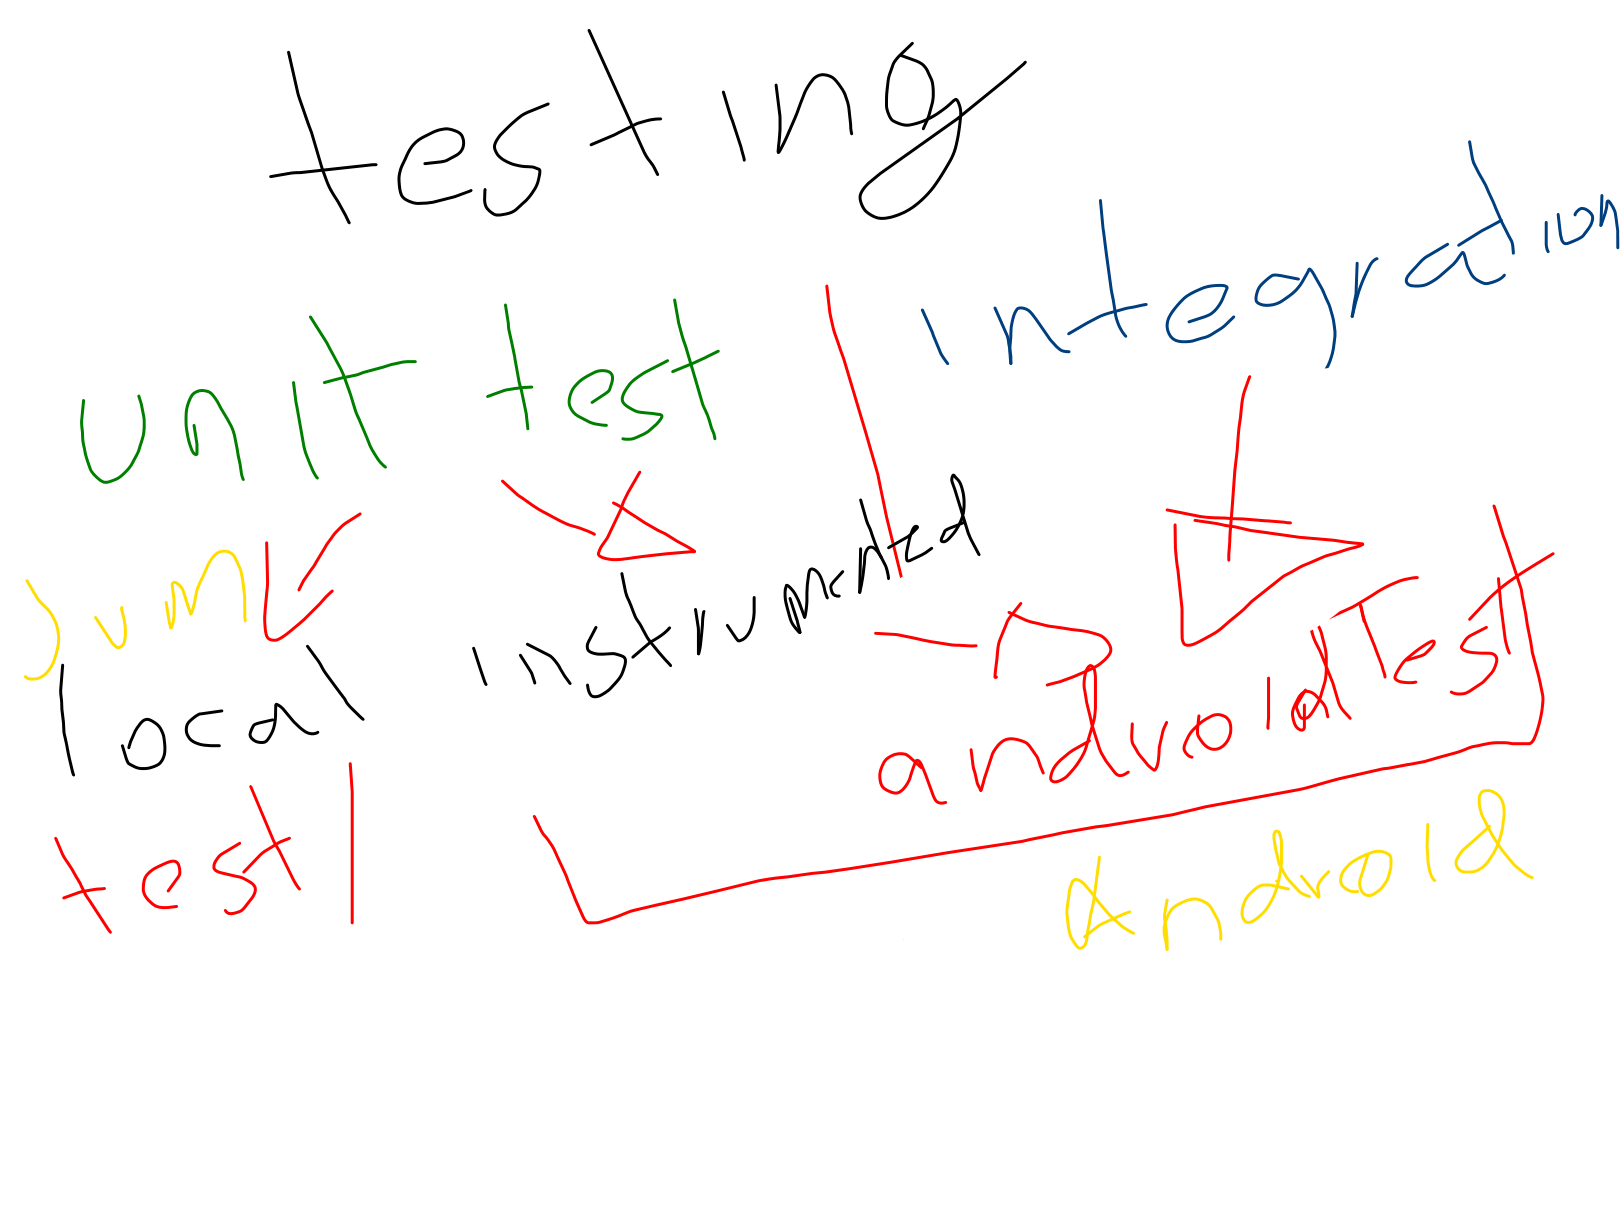 testing
unit test
integration
jvm
local
instrumented
androidTest
test
Android